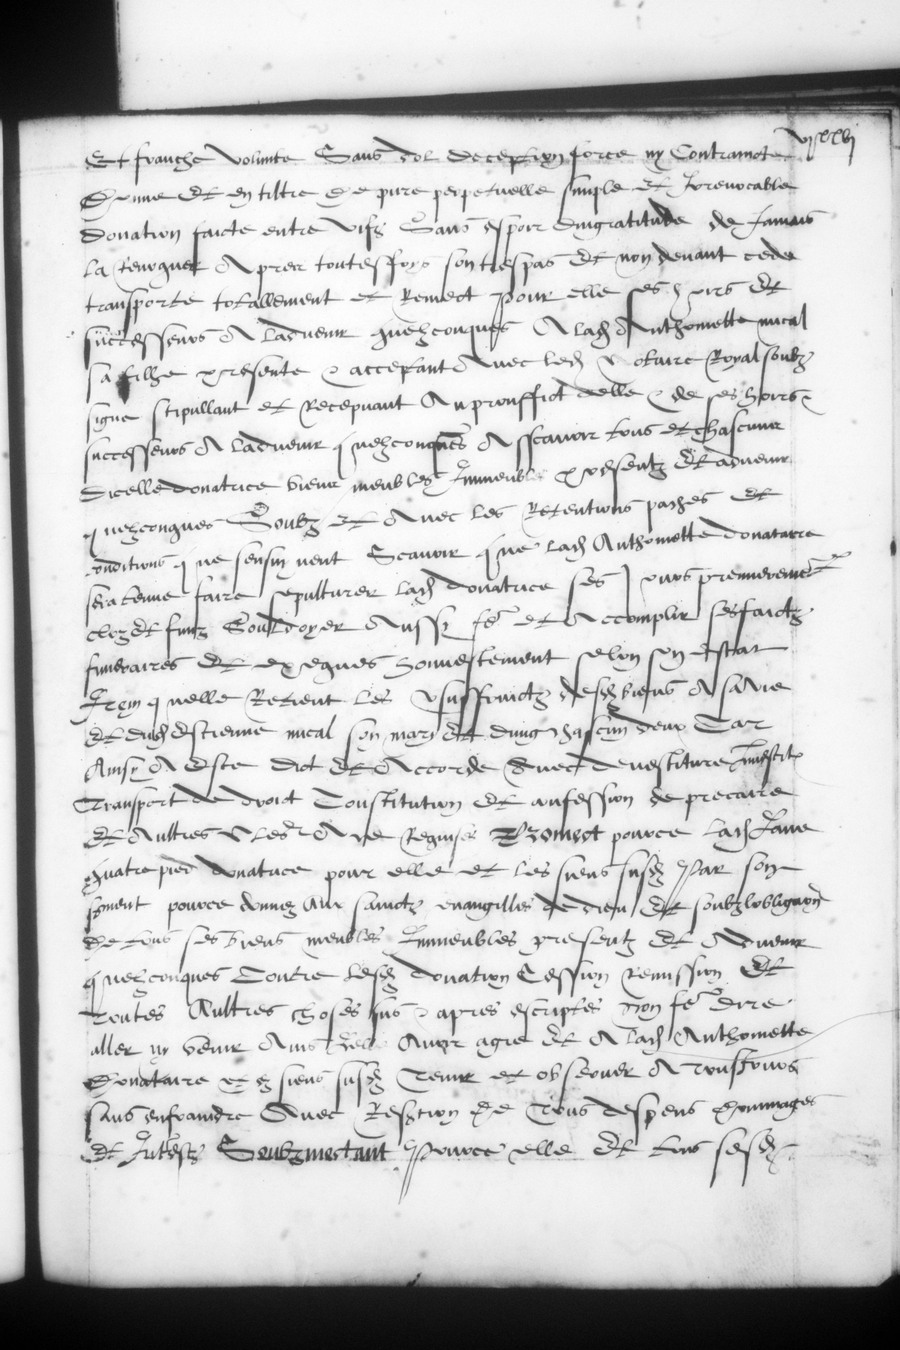 Et franche volunte Sans dol deception force ny Contraincte
Donne Et en tiltre de pure perpetuelle simple et Irrevocable
donation faicte entre vifz Sans espoir dingratitude de Jamais
la Revoquer Apres toutesfoys son trespas Et non devant cede
transporte totallement et Remect Pour elle ses hoirs Et
successeurs A ladvenir quelzconques A lad Anthomette mical
sa filhe presente & acceptant Avec led notaire Royal soubz
signe stipullant et Recepvant Au prouffict delle & de ses hoirs &
successeurs A ladvenir quelzconques A sscavoir tous et chascuns
Dicelle donatrice biens meubles Immeubles presentz Et advenir
quelzconques Soubz Et Avec les Retentions paches Et
conditions que sensuyvent Scavoir que lad Anthomette donataire
sera tenue faire sepulturer lad donatrice ses Jours premierement
cloz Et finiz Aussy fe et Accomplir ses faictz
funeraires Et exeques honnestement selon son estat
Item quelle Retient les usuffruictz desd biens A sa vie
Et dud Estienne mical son mary Et dung chascun deux Car
Ainsy A Este dict Et Accorde Avec devestiture Investit
Transport de droict Constitution Et confession de precaire
Et Aultres A ce Requises Promect pource lad Jane
quatre pied donatrice pour elle et les siens susd Par son
serment pource donne Aux sainctz evangilles de dieu Et soubz lobligaon
De tous ses biens meubles Immeubles presentz Et Advenir
quelzconques Contre lesd donation Cession Remission Et
Toutes Aultres choses sus & apres escriptes non fe dire
aller ny venir Ains Avoir agre Et A lad Anthomette
Donataire et es siens susd Tenir et observer A Tousjours
sans enfraindre Avec Restion De Tous despens Dommages
Et Interestz Soubzmectant Pource elle Et tous sesd